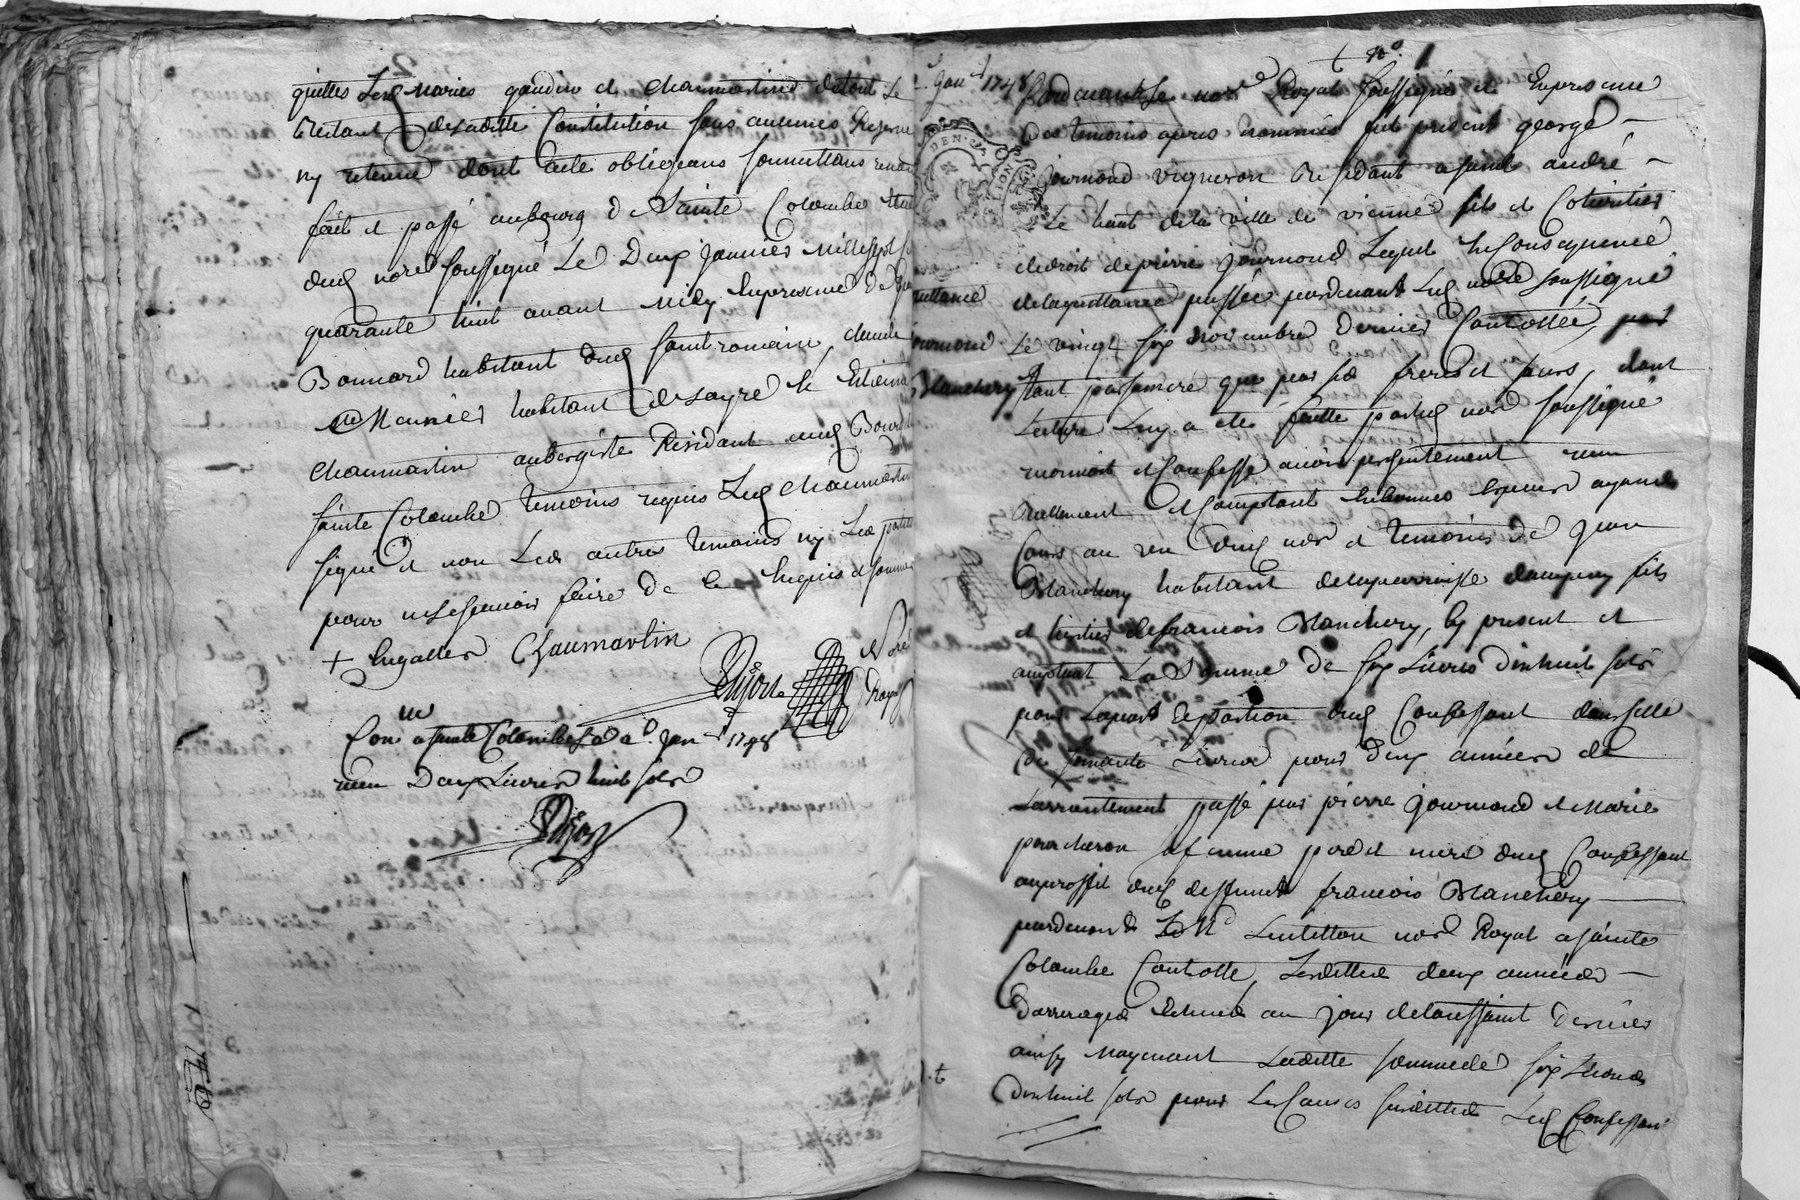 quittes lesd mariés gaudin et chaumartin de tout le
restant de laditte Constitution sans aucunes Reserve
ny retenue dont acte obligeans soumettans
fait et passé au bourg de Sainte Colombe
dud nore soussigné le Deux janvier mille sept
quarante huit avant midy En presence de
Bonnard habitant dud saint romain, claude
Meunier habitant de Layre et Etienne
chaumartin aubergiste Residant aud Bourg
sainte Colombe temoins requis Led chaumartin
signé et non Les autres temoins ny Les parties
pour ne sçavoir faire de ce Enquis et sommés
+ Chaumartin
Dijon Nore Royal
Con a sainte Colombe Le 2 Janr 1748
receu Deux Livres huit sols
Dijon
No 1
2 Janr 1748
Pardevant Le nore Royal soussigné et En presence
Des temoins apres nommés fut present george
journoud vigneron Residant a saint andré
Le haut de la ville de vienne fils et Coheritier
de droit de pierre journoud Lequel En Consequence
quittance
de la quittance passée pardevant Led nore soussigné
journoud
Le vingt six novembre dernier Controllée,
Blanchery
tant par sa mere que par ses freres et sœurs, dont
Lecture Luy a eté faitte par led nore soussigné
reconnoit et Confesse avoir presentement receu
Reellement et Comptant En bonnes Especes ayant
Cours au veu dud nore et temoins de jean
Blanchery habitant de la parroisse dampuy fils
et heritier de francois Blanchery, Cy present et
acceptant La Somme de six Livres dix huit sols
pour La part et portion dud Confessant dans celle
de soixante Livres pour deux années de
Larrentement passé par pierre journoud et Marie
poucheron sa femme pere et mere dud Confessant
au proffit dud deffunct francois Blanchery
pardevant Me Lentillon nore Royal a sainte
Colombe Controllé, Lesdittes deux années
d'arrerages Echues au jour de la toussaint dernier
ainsy moyenant Laditte somme de six Livres
dix huit sols pour Les Causes susdittes Led Confessant